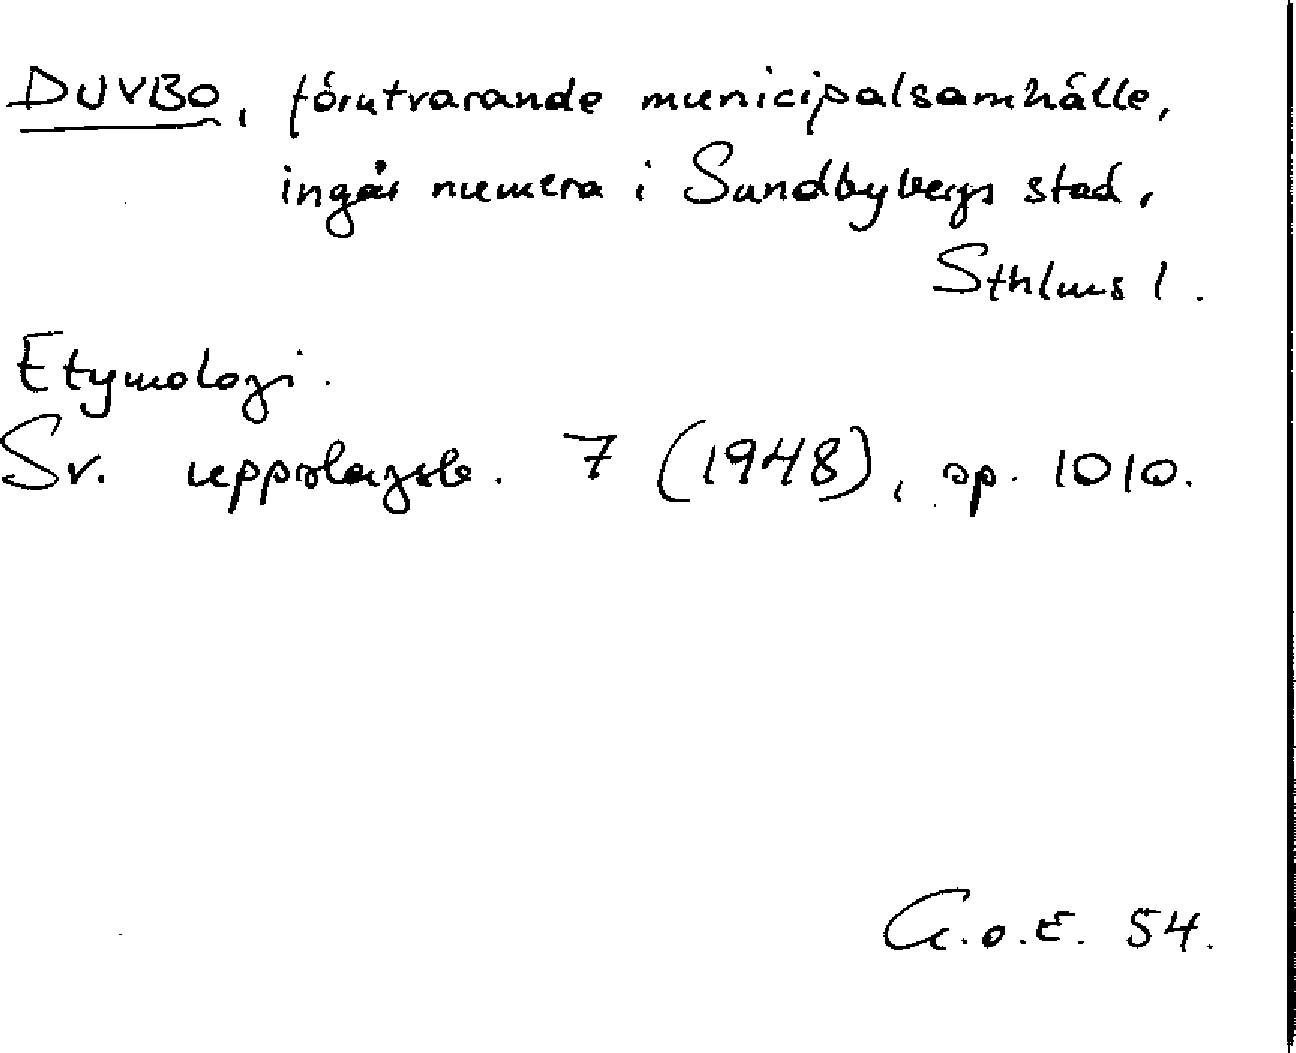 DUVBO, förutvarande municipalsamhälle,
ingår numera i Sundbybergs stad,
Sthlms l.
Etymologi.
Sv. uppslagsb. 7 (1948), sp. 1010.
G.o.E. 54.